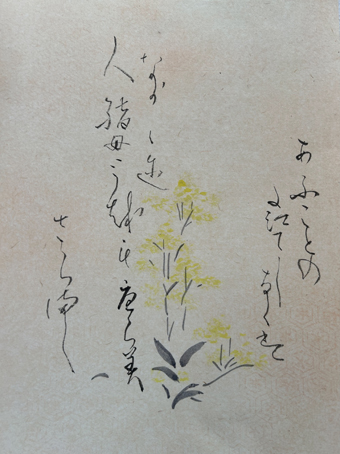 あふことの
たえてしなくは
なか〳〵に
人をもみをもうらみ
さらまし